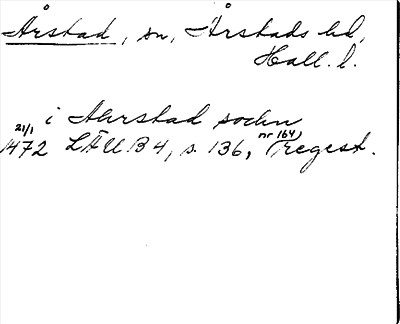 Årstad, sn, Årstads hd,
Hall. l.
i Ahrstad sochn
21/1 1472 LÄUB 4, s. 136, (nr 164) regest.